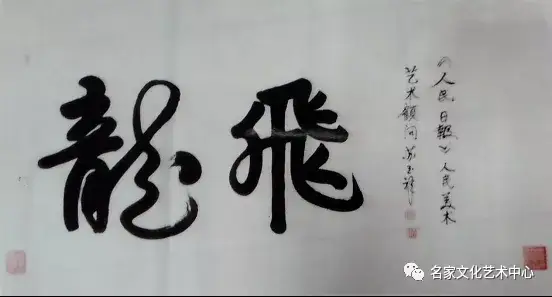 《人民日報》人民美术
艺术顧问
飛龍
名家文化艺术中心